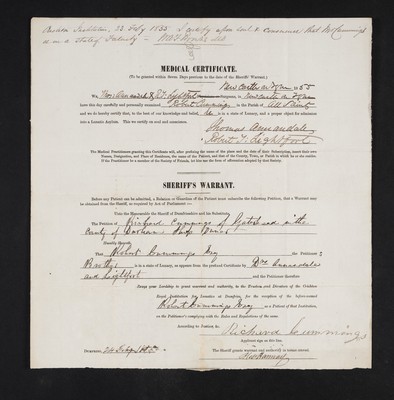 Crichton Institution, 22 Feby 1855 I certify upon soul & conscience that Mr Cummings
is in a State of Fatuity —
MEDICAL CERTIFICATE.
(To be granted within Seven Days previous to the date of the Sheriff's Warrant.)
Newcastle on Tyne 1855
We, Thos Annandale & R I Lightfoot Surgeons, in Newcastle on Tyne
have this day carefully and personally examined Robert Cummings in the Parish of All Saints
and we hereby certify that, to the best of our knowledge and belief, he is in a state of Lunacy, and a proper object for admission
into a Lunatic Asylum. This we certify on soul and conscience.
Thomas Annandale
Robert I. Lightfoot
The Medical Practitioners granting this Certificate will, after prefixing the name of the place and the date of their Subscription, insert their own
Names, Designation, and Place of Residence, the name of the Patient, and that of the County, Town, or Parish in which he or she resides.
If the Practitioners be of the Society of Friends, let them use the form of affirmation adopted by that Society.
SHERIFF'S WARRANT.
Before any Patient can be admitted, a Relation or Guardian of the Patient must subscribe the following Petition, that a Warrant may
be obtained from the Sheriff, as required by Act of Parliament:—
Unto the Honourable the Sheriff of Dumfriesshire and his Substitutes,
The Petition of Richard Cummings of Gateshead in the
County of Durham Ship Owner
Humbly Sheweth,
That Robert Cummings the Petitioner's
Brother is in a state of Lunacy, as appears from the prefixed Certificate by Drs Annandale
and Lightfoot and the Petitioner therefore
Prays your Lordship to grant warrant and authority to the Trustees and Directors of the Crichton
Royal Institution for Lunatics at Dumfries, for the reception of the before-named
Robert Cummings as a Patient of that Institution,
on the Petitioner's complying with the Rules and Regulations of the same.
According to Justice, &c.
Richard Cummings
Applicant sign on this line.
The Sheriff grants warrant and authority in terms craved.
DUMFRIES, 24 Feby 1855